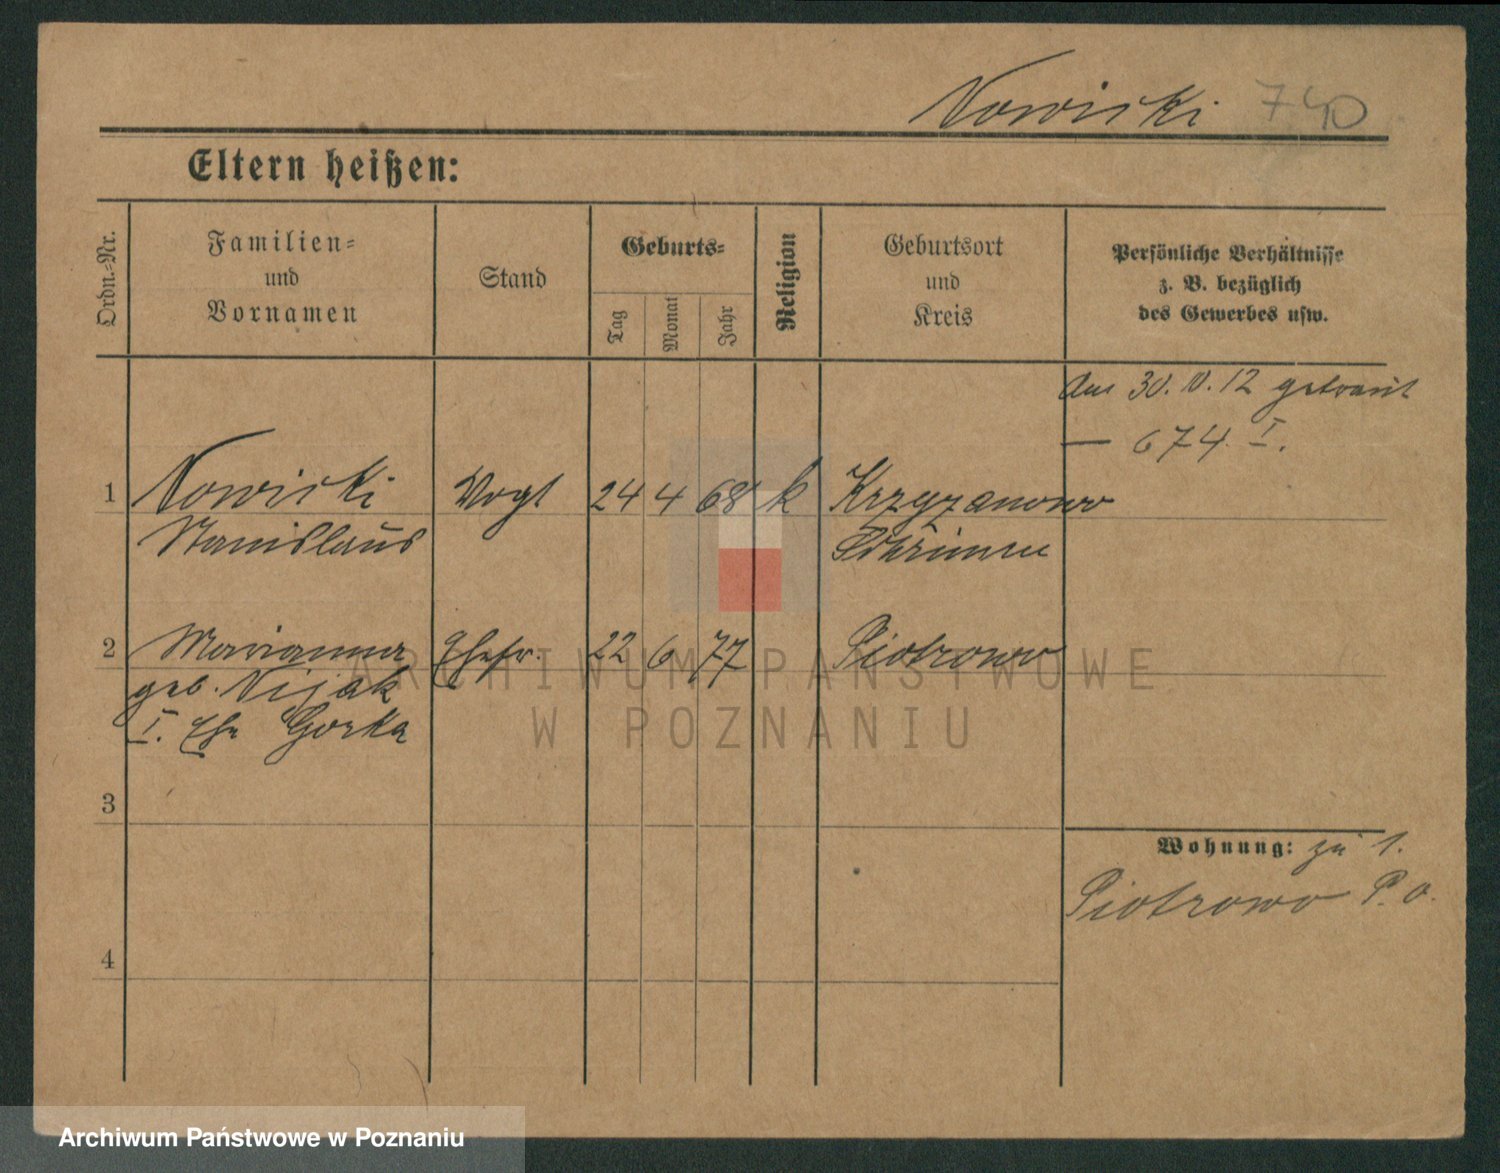 Nowicki 740
Eltern heißen:
Ordn.=Nr.
Familien=
und
Vornamen
Stand
Geburts=
Tag
Monat
Jahr
Religion
Geburtsort
und
Kreis
Persönliche Verhältnisse
z. B. bezüglich
des Gewerbes usw.
Am 30.10.12 getraut
— 674. I.
1 Nowicki Vogt 24 4 68 k Krzyzanowo
Stanislaus Schrimm
2 Marianna Ehefr. 22 6 77 Piotrowo
geb. Nijak
I. Ehe Gorka
3
Wohnung: zu 1.
Piotrowo P. o.
4
ARCHIWUM PAŃSTWOWE
W POZNANIU
Archiwum Państwowe w Poznaniu